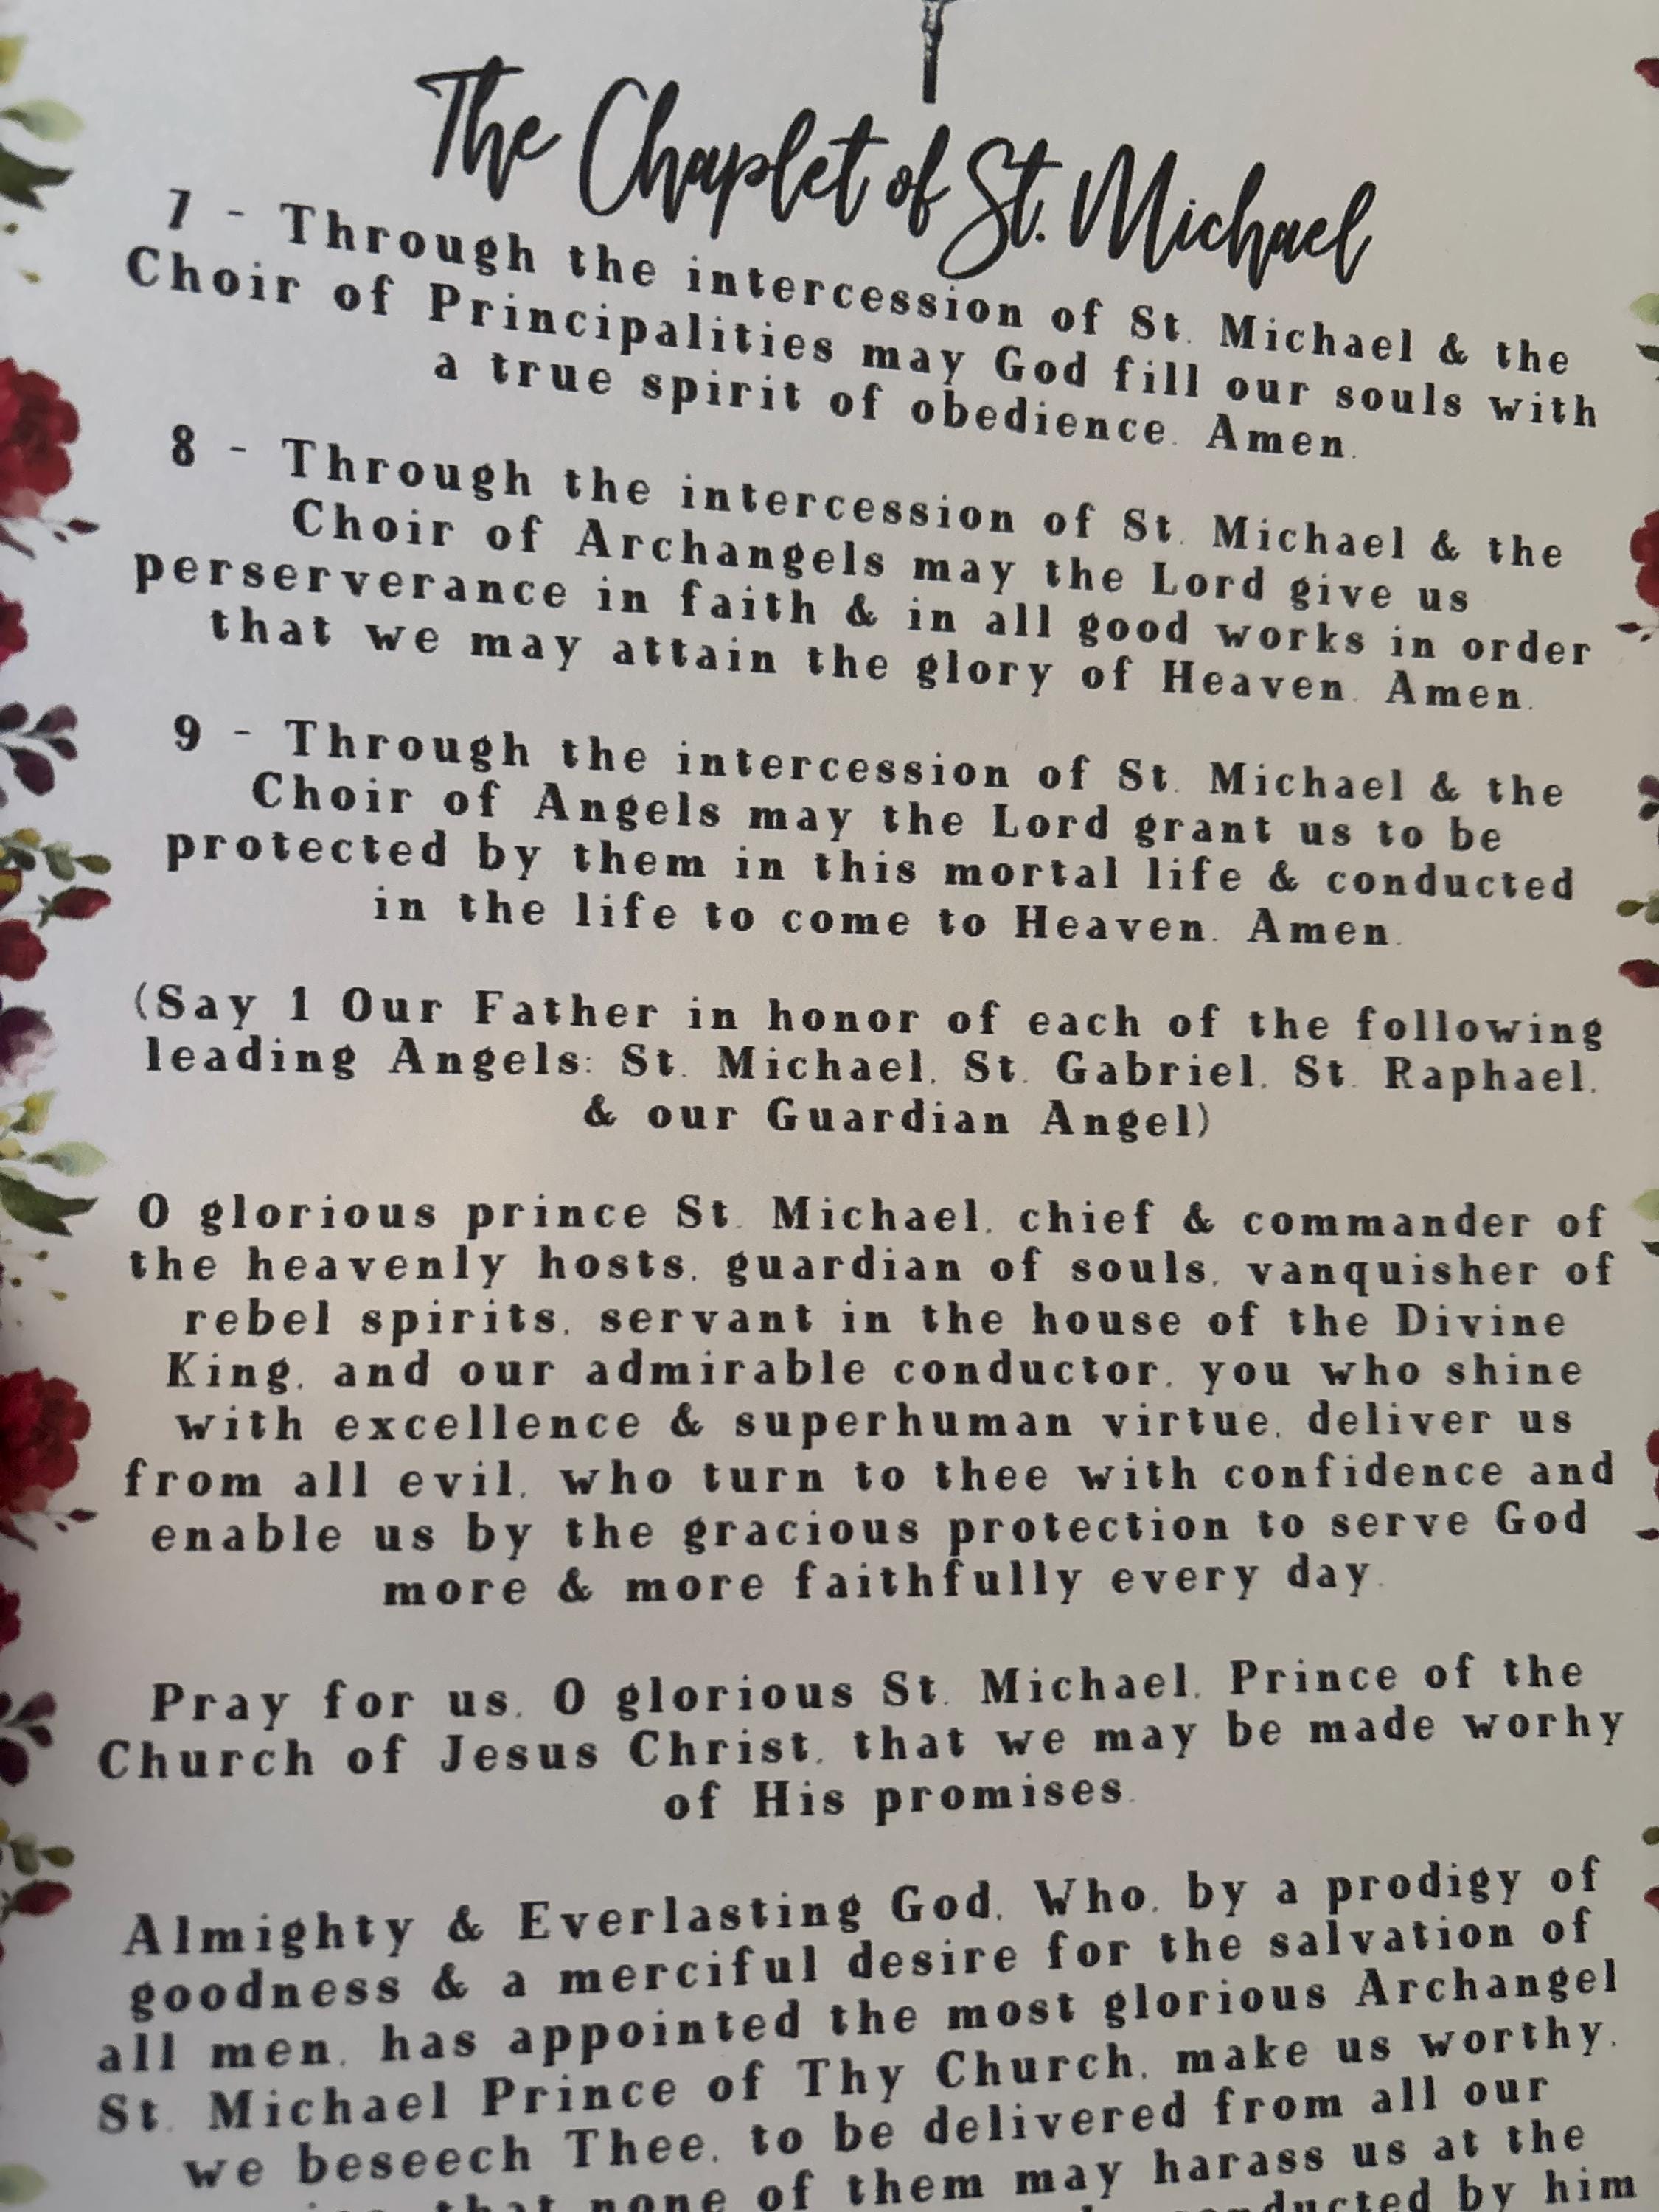 The Chaplet of St. Michael
7 - Through the intercession of St. Michael & the
Choir of Principalities may God fill our souls with
a true spirit of obedience. Amen.
8 - Through the intercession of St. Michael & the
Choir of Archangels may the Lord give us
perserverance in faith & in all good works in order
that we may attain the glory of Heaven. Amen.
9 - Through the intercession of St. Michael & the
Choir of Angels may the Lord grant us to be
protected by them in this mortal life & conducted
in the life to come to Heaven. Amen.
(Say 1 Our Father in honor of each of the following
leading Angels: St. Michael, St. Gabriel, St. Raphael,
& our Guardian Angel)
O glorious prince St. Michael, chief & commander of
the heavenly hosts, guardian of souls, vanquisher of
rebel spirits, servant in the house of the Divine
King, and our admirable conductor, you who shine
with excellence & superhuman virtue, deliver us
from all evil, who turn to thee with confidence and
enable us by the gracious protection to serve God
more & more faithfully every day.
Pray for us, O glorious St. Michael, Prince of the
Church of Jesus Christ, that we may be made worhy
of His promises.
Almighty & Everlasting God, Who, by a prodigy of
goodness & a merciful desire for the salvation of
all men, has appointed the most glorious Archangel
St. Michael Prince of Thy Church, make us worthy,
we beseech Thee, to be delivered from all our
that none of them may harass us at the
by him